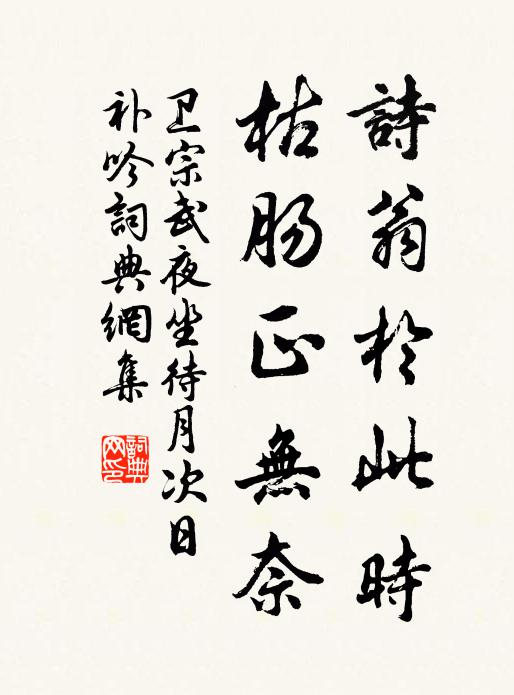 詩翁於此時
枯肠正無奈
卫宗武夜坐待月次日
补吟詞典網集
詞典
网印